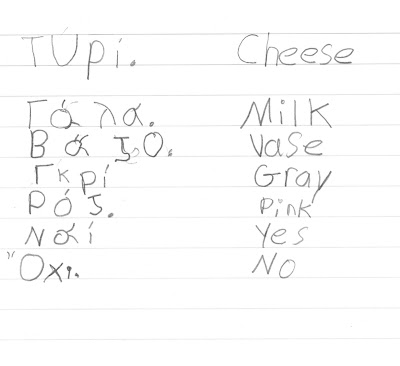 Τυρί. Cheese
Γάλα. Milk
Βάζο. Vase
Γκρί Gray
Ρόζ. Pink
Ναί Yes
Όχι. No